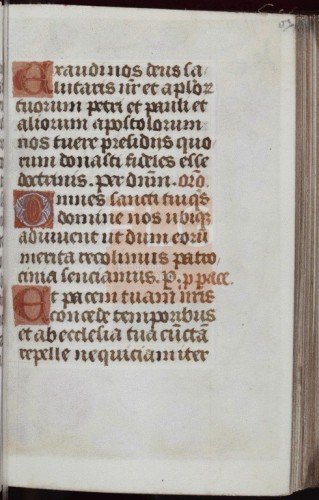 Exaudi nos deus sa
lutaris nr̄ et aplor
tuorum petri et pauli et
aliorum apostolorum
nos tuere presidiis quo
rum donasti fideles esse
doctrinis. per dnm̄. oro.
Omnes sancti tui q̄s
domine nos ubique
adiuuent ut dum eorū
merita recolimus patro
cinia senciamus. P. p pace.
Et pacem tuam nr̄is
concede temporibus
et ab ecclesia tua cūctā
repelle nequiciam iter